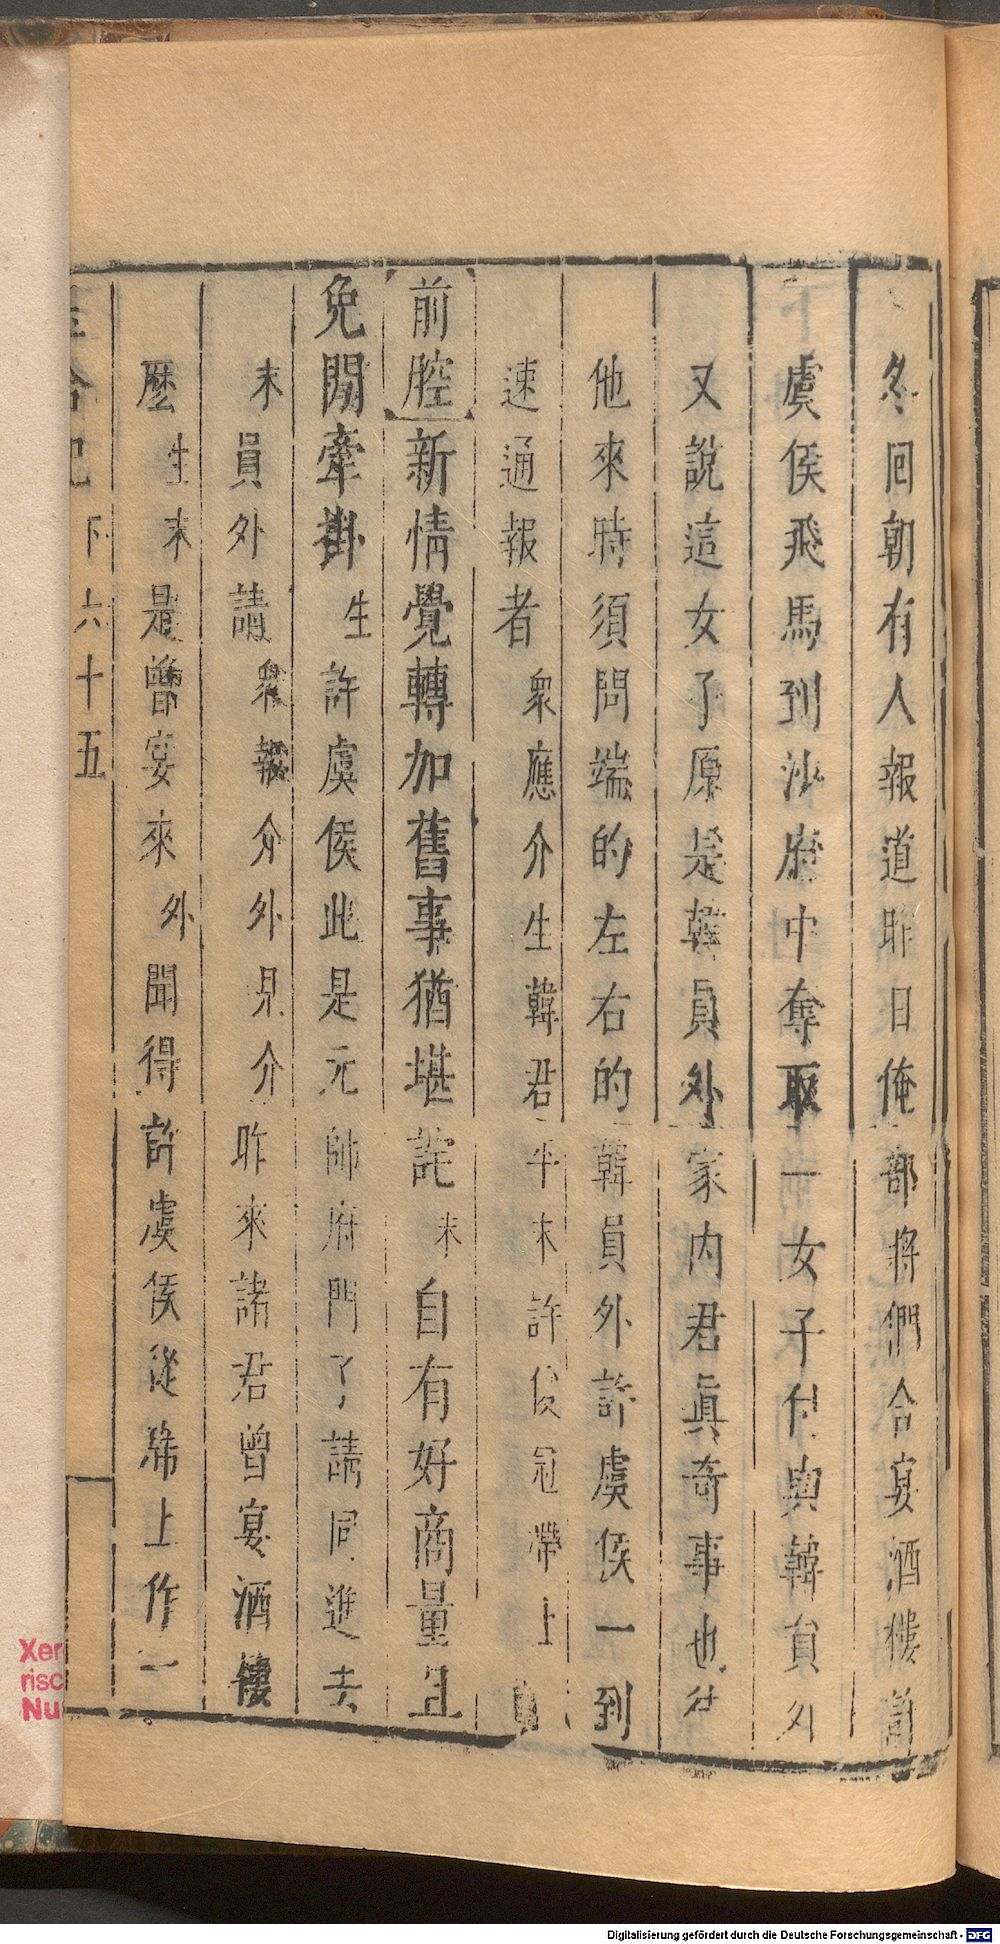 冬回朝有人報道昨日俺部將們合宴酒樓許
虞侯飛馬到沙府中奪取一女子付與韓員外
又說這女子原是韓員外家內君眞奇事也
他來時須問端的左右的韓員外許虞侯一到
速通報者衆應介生韓君平末許俊冠帶上
前腔新情覺轉加舊事猶堪詫末自有好商量且
免閒牽掛生許虞侯此是元帥府門了請同進去
末員外請衆報介外見介昨來諸君曾宴酒樓
麽生末是曾宴來外聞得許虞侯從席上作一
玉合記 下 六十五
Xer
risc
Nu
Digitalisierung gefördert durch die Deutsche Forschungsgemeinschaft - DFG